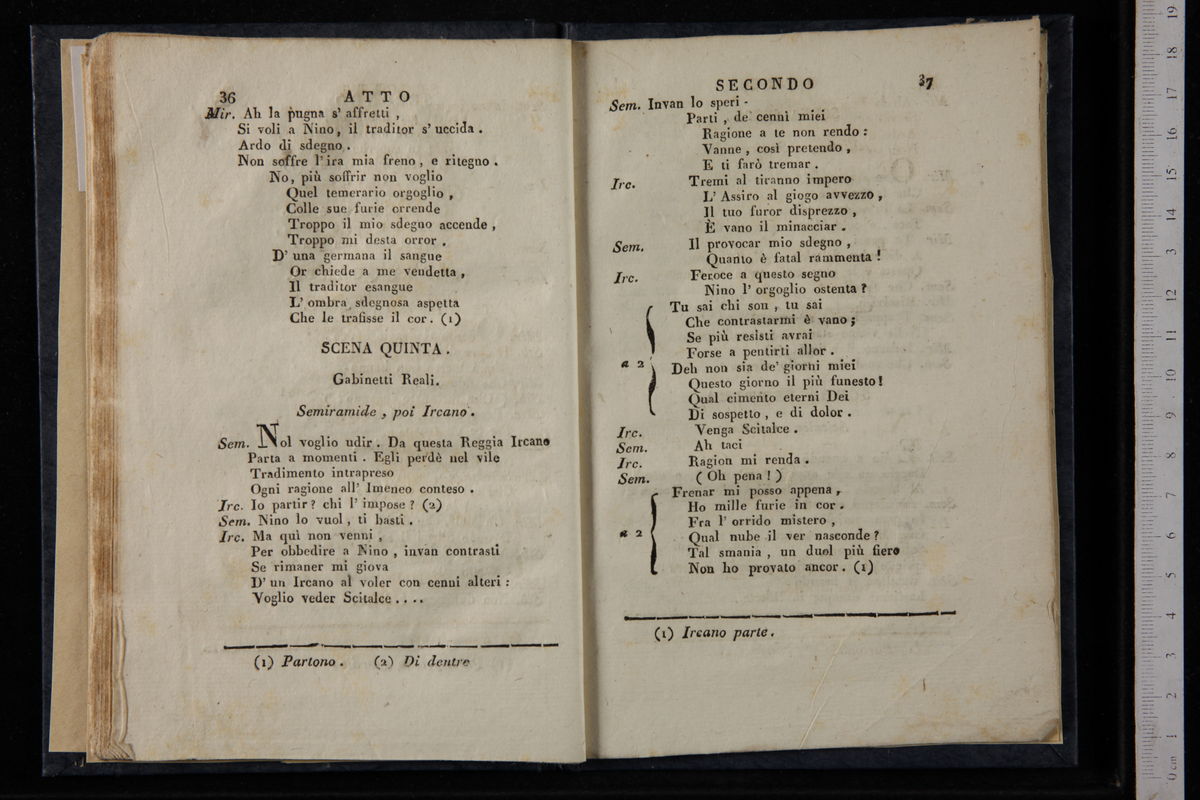 36
ATTO
Mir. Ah la pugna s' affretti ,
Si voli a Nino, il traditor s' uccida .
Ardo di sdegno .
Non soffre l' ira mia freno , e ritegno .
No, più soffrir non voglio
Quel temerario orgoglio ,
Colle sue furie orrende
Troppo il mio sdegno accende ,
Troppo mi desta orror .
D' una germana il sangue
Or chiede a me vendetta ,
Il traditor esangue
L' ombra sdegnosa aspetta
Che le trafisse il cor . (1)
SCENA QUINTA .
Gabinetti Reali.
Semiramide , poi Ircano .
Sem. Nol voglio udir . Da questa Reggia Ircano
Parta a momenti . Egli perdè nel vile
Tradimento intrapreso
Ogni ragione all' Imeneo conteso .
Irc. Io partir ? chi l' impose ? (2)
Sem. Nino lo vuol , ti basti .
Irc. Ma quì non venni ,
Per obbedire a Nino , invan contrasti
Se rimaner mi giova
D' un Ircano al voler con cenni alteri :
Voglio veder Scitalce . . . .
(1) Partono . (2) Di dentre
SECONDO
37
Sem. Invan lo speri -
Parti , de' cenni miei
Ragione a te non rendo :
Vanne , così pretendo ,
E ti farò tremar .
Irc. Tremi al tiranno impero
L' Assiro al giogo avvezzo ,
Il tuo furor disprezzo ,
È vano il minacciar .
Sem. Il provocar mio sdegno ,
Quanto è fatal rammenta !
Irc. Feroce a questo segno
Nino l' orgoglio ostenta ?
Tu sai chi son , tu sai
Che contrastarmi è vano ;
Se più resisti avrai
Forse a pentirti allor . . .
a 2 Deh non sia de' giorni miei
Questo giorno il più funesto !
Qual cimento eterni Dei
Di sospetto , e di dolor .
Irc. Venga Scitalce .
Sem. Ah taci
Irc. Ragion mi renda .
Sem. ( Oh pena ! )
Frenar mi posso appena ,
Ho mille furie in cor .
Fra l' orrido mistero ,
a 2 Qual nube il ver nasconde ?
Tal smania , un duol più fiero
Non ho provato ancor . (1)
(1) Ircano parte .
0 cm 1 2 3 4 5 6 7 8 9 10 11 12 13 14 15 16 17 18 19